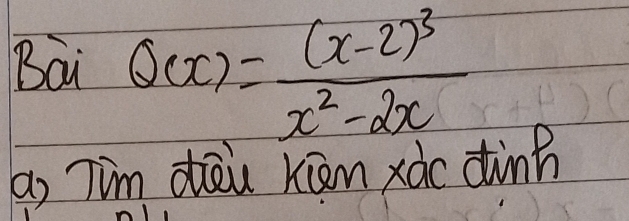 Bài Q(x) = (x-2)³ / x² - 2x
a) Tìm điều kiện xác định